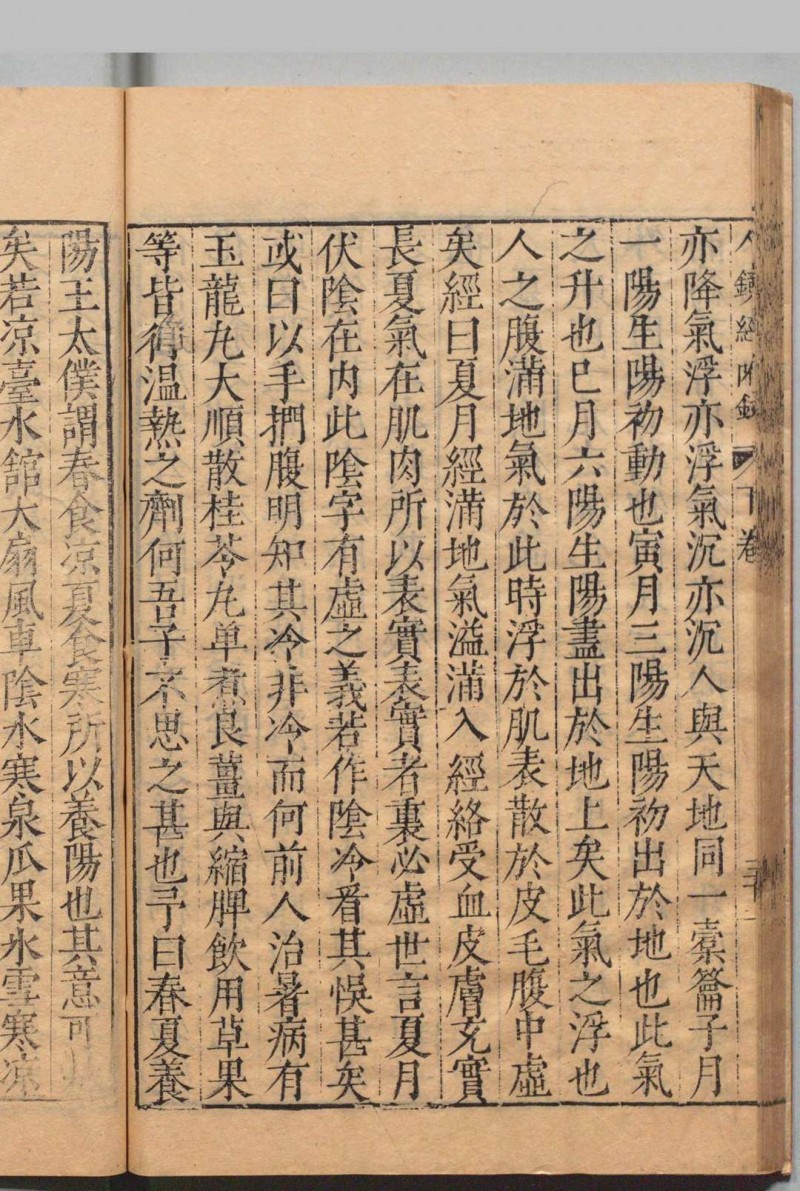 亦降氣浮亦浮氣沉亦沉人與天地同一橐籥子月
一陽生陽初動也寅月三陽生陽初出於地也此氣
之升也巳月六陽生陽盡出於地上矣此氣之浮也
人之腹滿地氣於此時浮於肌表散於皮毛腹中虛
矣經曰夏月經滿地氣溢滿入經絡受血皮膚充實
長夏氣在肌肉所以表實表實者裏必虛世言夏月
伏陰在内此陰字有虛之義若作陰冷看其悞甚矣
或曰以手捫腹明知其冷非冷而何前人治暑病有
玉龍丸大順散桂苓丸单煮良薑與縮脾飲用草果
等皆行温熱之劑何吾子不思之甚也予曰春夏養
陽王太僕謂春食凉夏食寒所以養陽也其意可
矣若凉臺水舘大扇風車陰水寒泉瓜果氷雪寒凉